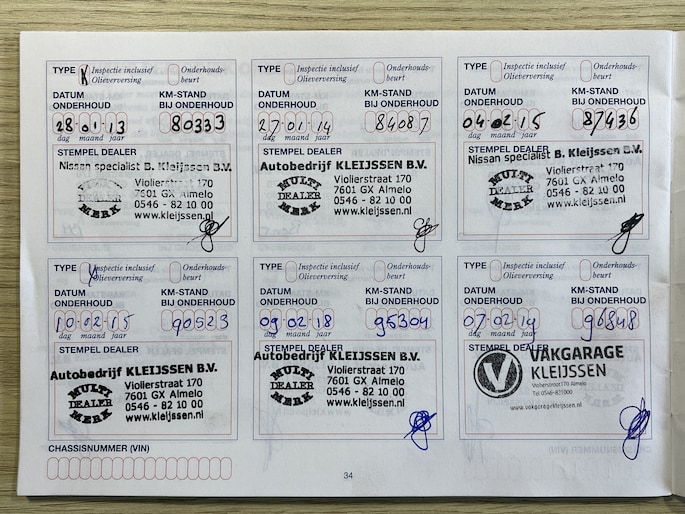 TYPE K Inspectie inclusief Olieverversing Onderhouds-beurt
DATUM ONDERHOUD KM-STAND BIJ ONDERHOUD
28-01-13 80333
dag maand jaar
STEMPEL DEALER
Nissan specialist B. Kleijssen B.V.
MULTI DEALER MERK
Violierstraat 170
7601 GX Almelo
0546 - 82 10 00
www.kleijssen.nl
TYPE Inspectie inclusief Olieverversing Onderhouds-beurt
DATUM ONDERHOUD KM-STAND BIJ ONDERHOUD
27-01-14 84087
dag maand jaar
STEMPEL DEALER
Autobedrijf KLEIJSSEN B.V.
MULTI DEALER MERK
Violierstraat 170
7601 GX Almelo
0546 - 82 10 00
www.kleijssen.nl
TYPE Inspectie inclusief Olieverversing Onderhouds-beurt
DATUM ONDERHOUD KM-STAND BIJ ONDERHOUD
04-02-15 87436
dag maand jaar
STEMPEL DEALER
Nissan specialist B. Kleijssen B.V.
MULTI DEALER MERK
Violierstraat 170
7601 GX Almelo
0546 - 82 10 00
www.kleijssen.nl
TYPE Inspectie inclusief Olieverversing Onderhouds-beurt
DATUM ONDERHOUD KM-STAND BIJ ONDERHOUD
10-02-15 90523
dag maand jaar
STEMPEL DEALER
Autobedrijf KLEIJSSEN B.V.
MULTI DEALER MERK
Violierstraat 170
7601 GX Almelo
0546 - 82 10 00
www.kleijssen.nl
TYPE Inspectie inclusief Olieverversing Onderhouds-beurt
DATUM ONDERHOUD KM-STAND BIJ ONDERHOUD
09-02-18 95304
dag maand jaar
STEMPEL DEALER
Autobedrijf KLEIJSSEN B.V.
MULTI DEALER MERK
Violierstraat 170
7601 GX Almelo
0546 - 82 10 00
www.kleijssen.nl
TYPE Inspectie inclusief Olieverversing Onderhouds-beurt
DATUM ONDERHOUD KM-STAND BIJ ONDERHOUD
07-02-19 96848
dag maand jaar
STEMPEL DEALER
V VAKGARAGE
KLEIJSSEN
Violierstraat 170 Almelo
Tel 0546-821000
www.vakgaragekleijssen.nl
CHASSISNUMMER (VIN)
34